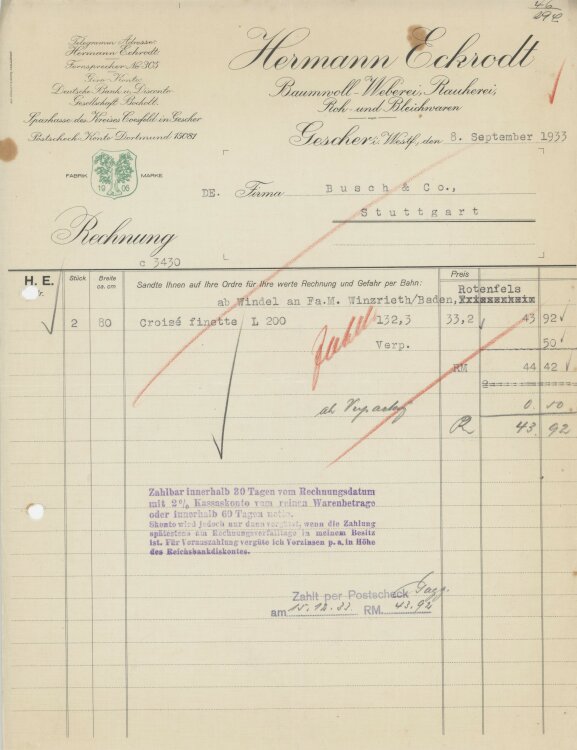 Telegramm Adresse:
Hermann Eckrodt
Fernsprecher No 305
Giro-Konto:
Deutsche Bank u. Disconto
Gesellschaft Bocholt.
Sparkasse des Kreises Coesfeld in Gescher
Postscheck-Konto Dortmund 15081
Hermann Eckrodt
Baumwoll-Weberei, Rauherei,
Roh- und Bleichwaren
Gescher i. Westf., den 8. September 1933
FABRIK MARKE
19 06
DE. Firma Busch & Co.,
Stuttgart
Rechnung
c 3430
H. E.
Nr.
Stück Breite ca. cm Sandte Ihnen auf Ihre Ordre für Ihre werte Rechnung und Gefahr per Bahn: Preis
Rotenfels
ab Windel an Fa.M. Winzrieth/Baden, Friesenheim
2 80 Croisé finette L 200 132,3 33,2 43 92
Verp. 50
RM 44 42
ab Verpackg 0.50
R 43.92
Zahlbar innerhalb 30 Tagen vom Rechnungsdatum
mit 2% Kassaskonto vom reinen Warenbetrage
oder innerhalb 60 Tagen netto.
Skonto wird jedoch nur dann vergütet, wenn die Zahlung
spätestens am Rechnungsverfalltage in meinem Besitz
ist. Für Vorauszahlung vergüte ich Vorzinsen p. a. in Höhe
des Reichsbankdiskontes.
Zahlt per Postscheck
am 15.12.33 RM. 43.92